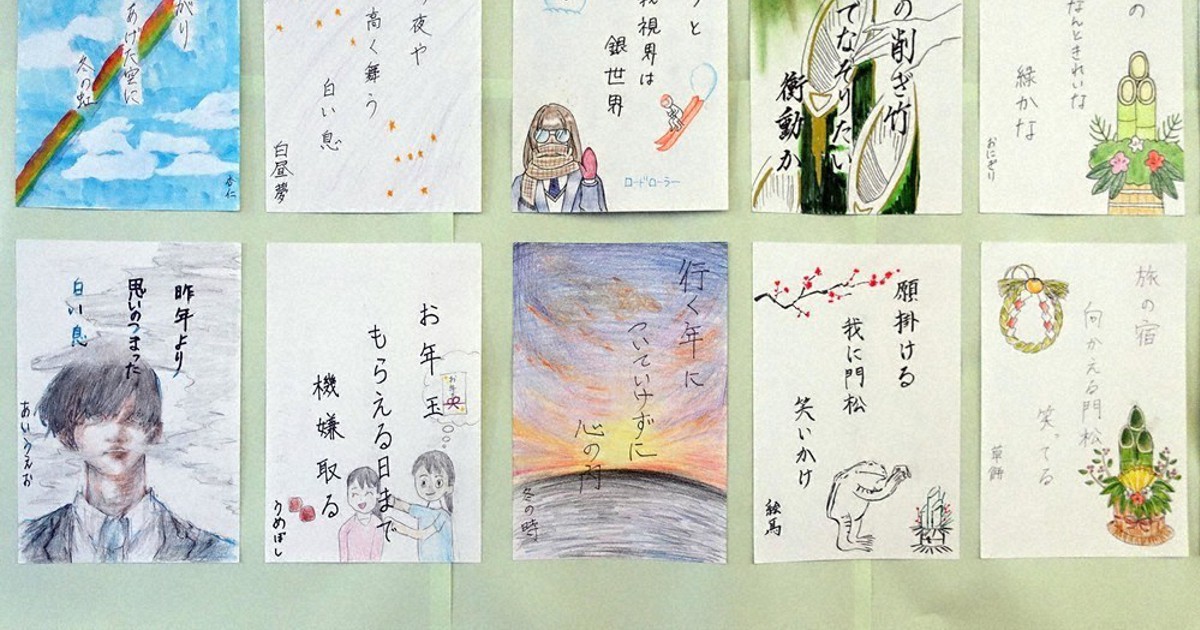 がり
あげた空に
冬の虹
杏仁
夜や
高く舞う
白い息
白昼夢
と
視界は
銀世界
ロードローラー
の削ぎ竹
てなぞりたい
衝動か
の
なんときれいな
緑かな
おにぎり
昨年より
思いのつまった
白い息
あいうえお
お年玉
もらえる日まで
機嫌取る
うめぼし
行く年に
ついていけずに
心の内
冬の時
願掛ける
我に門松
笑いかけ
絵馬
旅の宿
向かえる門松
笑ってる
草餅